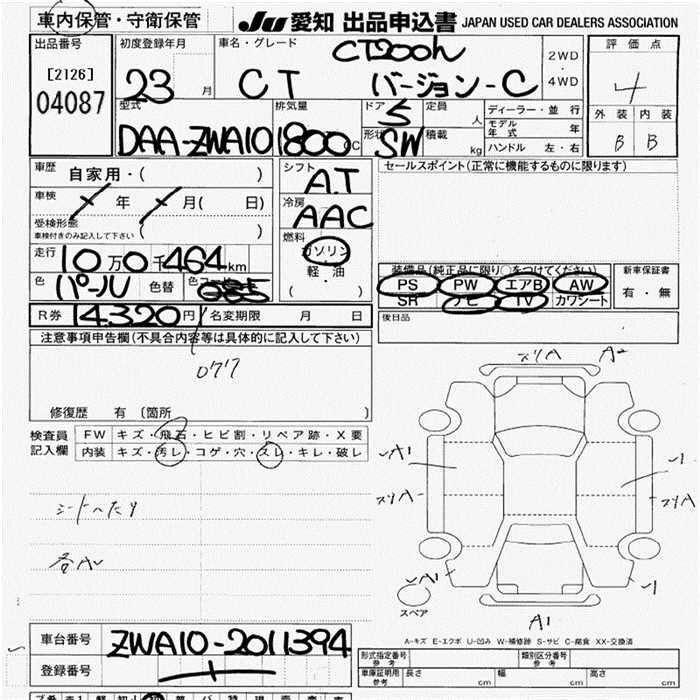 車内保管・守衛保管
JU 愛知 出品申込書 JAPAN USED CAR DEALERS ASSOCIATION
出品番号 初度登録年月 車名・グレード 評価点
[2126] 23 月 CT CT200h バージョン-C 2WD・4WD 4
04087
型式 排気量 ドア 5 定員 人 ディーラー・並行 外装 内装
モデル年式 年
DAA-ZWA10 1800 CC 形状 SW 積載 kg ハンドル 左・右 B B
車歴 自家用・( ) シフト A.T セールスポイント(正常に機能するものに限ります)
車検 年 月( 日) 冷房 AAC
受検形態
車検付きのみ記入して下さい ( )
燃料 ガソリン
走行 10万0千464km 軽・油
( ・ )
装備品(純正品に限り○をつけてください) 新車保証書
色 パール 色替 色コード 085 PS PW エアB AW 有・無
SR ナビ TV カワシート
R券 14.320円 名変期限 月 日 後日品
注意事項申告欄(不具合内容等は具体的に記入して下さい)
077
修復歴 有 〔箇所 〕
検査員 FW キズ・飛石・ヒビ割・リペア跡・X要
記入欄 内装 キズ・汚レ・コゲ・穴・スレ・キレ・破レ
シートへたり
各AU
スリA A2
A1 1
スリA スリA
A1 1
スペア A1
A-キズ E-エクボ U-凹み W-補修跡 S-サビ C-腐食 XX-交換済
車台番号 ZWA10-2011394
登録番号
形式指定番号 参考 類別区分番号 参考
車庫証明用 参考 長さ cm 幅 cm 高さ cm